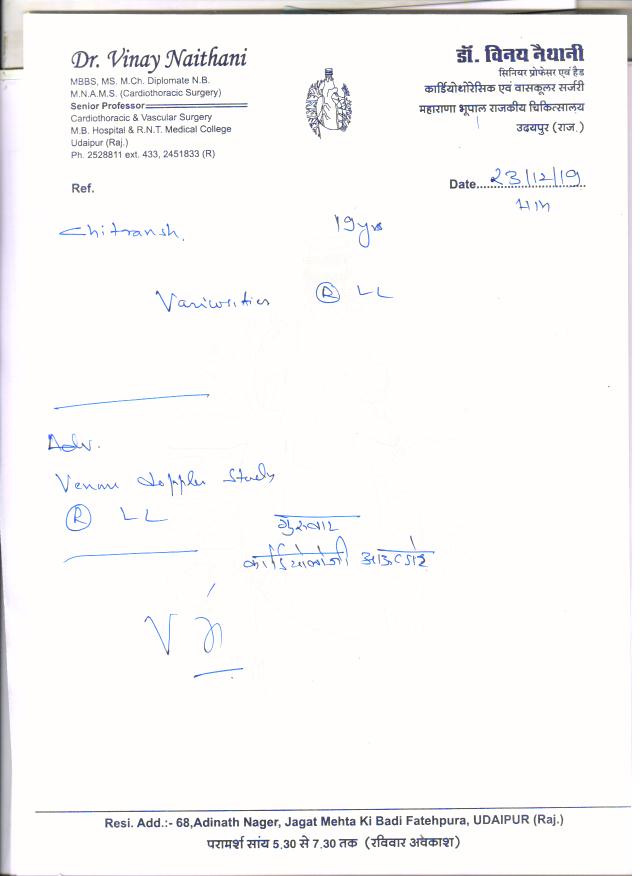 Dr. Vinay Naithani
MBBS, MS. M.Ch. Diplomate N.B.
M.N.A.M.S. (Cardiothoracic Surgery)
Senior Professor
Cardiothoracic & Vascular Surgery
M.B. Hospital & R.N.T. Medical College
Udaipur (Raj.)
Ph. 2528811 ext. 433, 2451833 (R)
डॉ. विनय नैथानी
सिनियर प्रोफेसर एवं हैड
कार्डियोथोरेसिक एवं वासकूलर सर्जरी
महाराणा भूपाल राजकीय चिकित्सालय
उदयपुर (राज.)
Ref.
Date 23/12/19
Chitransh. 19yrs
Varicosities (R) LL
Adv.
Venous doppler Study
(R) LL
गुरुवार
कार्डियोलोजी आऊटडोर
Resi. Add.:- 68,Adinath Nager, Jagat Mehta Ki Badi Fatehpura, UDAIPUR (Raj.)
परामर्श सांय 5.30 से 7.30 तक (रविवार अवेकाश)